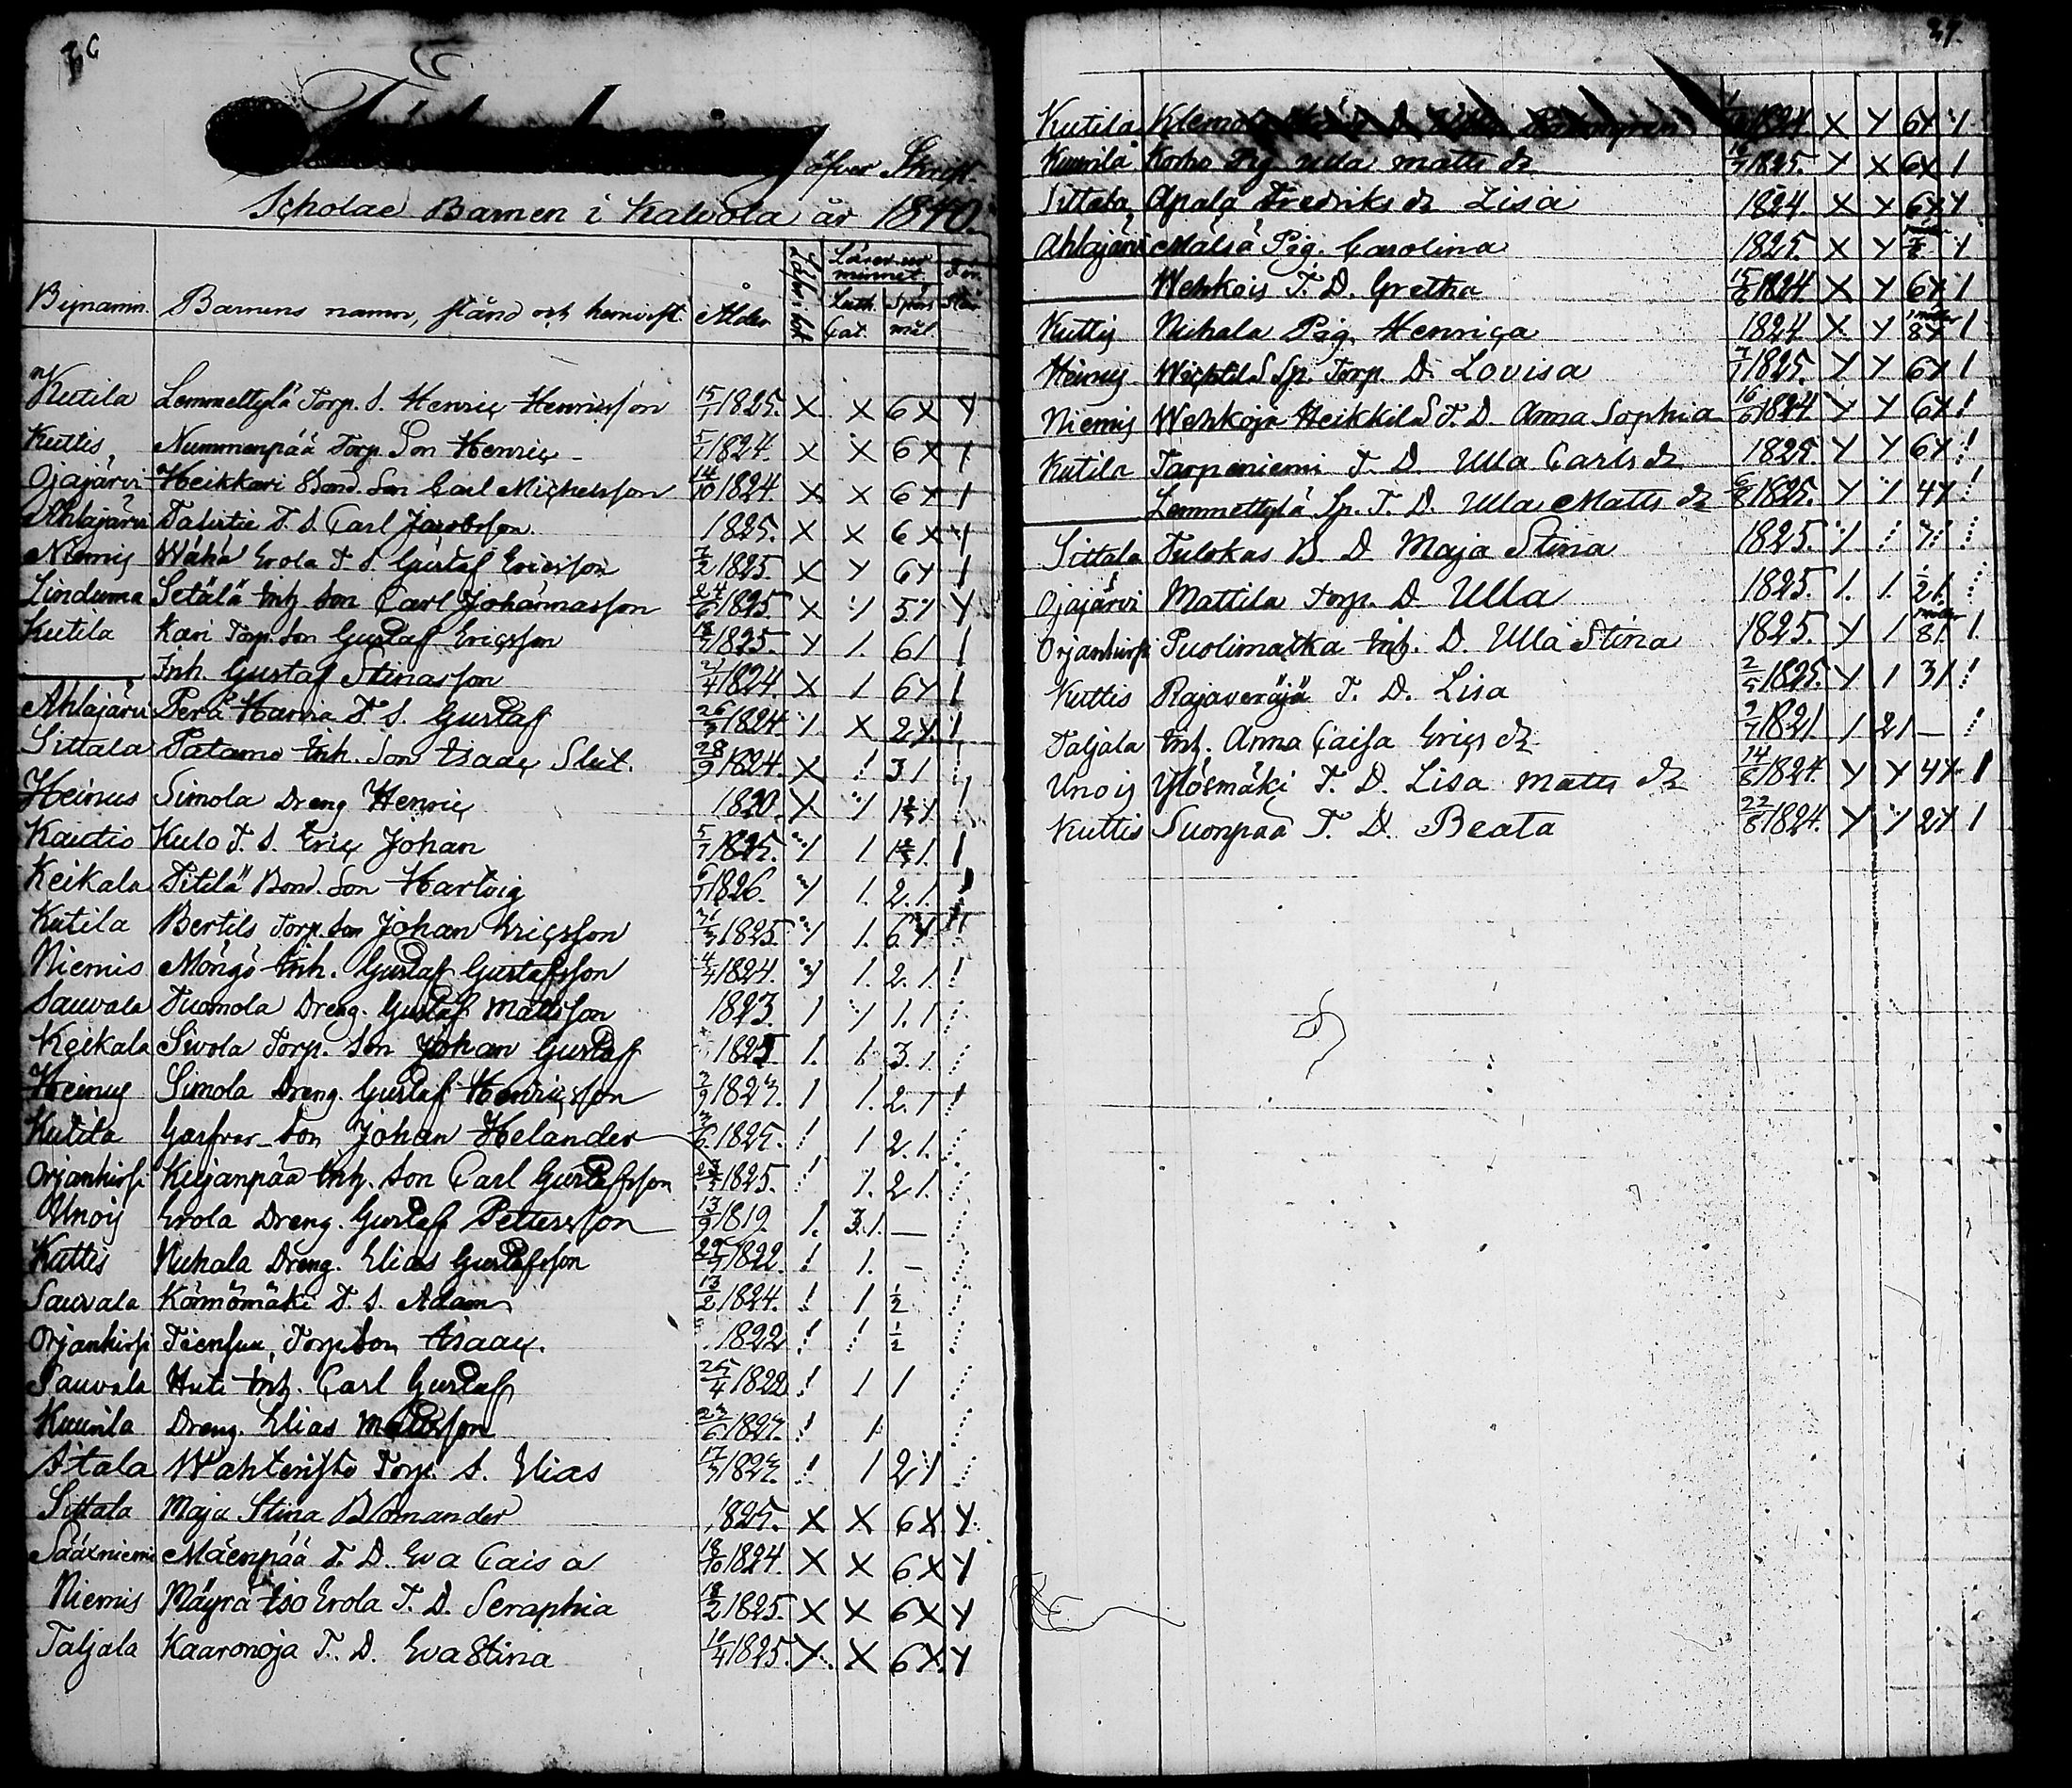 36
Förteckning
öfver Skrift-
Scholae Barnen i Kalvola år 1840.
Bynamn. Barnens namn, stånd och hemvist. Ålder Läser i bok Läser ur minnet. Luth. Cat. Spörs mål. För står
Kutila Lemmettylä Torp. S. Henric Henricsson 15/1 1825. X X 6 X Y
Kuttis Nummenpää Torp. Son Henric 5/1 1824. X X 6 X /
Ojajärvi Heikkari Bond. Son Carl Michelsson 14/10 1824. X X 6 Y /
Ahlajärvi Talirtie T. S. Carl Jacobsson 1825. X X 6 X Y
Niemis Wähä Erola T. S. Gustaf Ericsson 7/2 1825 X Y 6 Y /
Linduma Setälä Inh. Son Carl Johannasson 24/6 1825 X Y 5 Y Y
Kutila Kari Torp. Son Gustaf Ericsson 18/7 1825. Y / 6 / /
Inh. Gustaf Stinasson 21/4 1824. X / 6 Y /
Ahlajärvi Perä Harvia T. S. Gustaf 26/3 1824 Y X 2 Y /
Sittala Patamo Inh. Son Isaac Slut. 28/9 1824. X / 3 /
Heinus Simola Dreng Henric 1820. X Y
Kautio Kulo T. S. Eric Johan 5/7 1825. Y /
Keikala Pitilä Bond. Son Hartvig 6/7 1826. Y / 2. /
Kutila Bertils Torp. Son Johan Ericsson 31/3 1825. Y / 6 Y
Niemis Möngö Inh. Gustaf Gustafsson 4/4 1824. Y / 2. /
Sauvala Tuomola Dreng. Gustaf Mattsson 1823. / Y 1. /
Keikala Sivola Torp. Son Johan Gustaf 1825 / / 3. /
Heinus Simola Dreng. Gustaf Henricsson 7/9 1823. / / 2. / /
Kutila Son Johan Helander 3/6 1825. / / 2. /
Orjanhirsi Kiljanpää Inh. Son Carl Gustafsson 1825. / / 2 /
Unois Erola Dreng. Gustaf Pettersson 13/9 1819. / 3. / —
Kuttis Nuhala Dreng. Elias Gustafsson 1822. / / —
Sauvala Kömömäki T. S. Adam 13/2 1824. / / 1/2
Orjanhirsi Tiensuu, Torp. Son Isaac. 1822 / / 1/2
Sauvala Huti Inh. Carl Gustaf 25/4 1822 / / /
Kuurila Dreng. Elias Mattsson 23/6 1823. / /
Ätala Wahteristo Torp. S. Elias 17/3 1823. / / 2 /
Sittala Maja Stina Blomander 1825. X X 6 X Y
Sääxniemi Mäenpää T. D. Eva Caisa 18/10 1824. X X 6 X Y
Niemis Mäyrä Iso Erola T. D. Seraphia 18/2 1825. X X 6 X Y
Taljala Kaaronoja T. D. Eva Stina 10/4 1825. Y X 6 X Y
37.
Kutila Klemola 1824. X Y 6 Y Y
Kuurila Korho Pig. Ulla Matts dr 16/7 1825. Y X 6 X /
Sittala Apala Fredriks dr Lisa 1824. X Y 6 Y Y
Ahlajärvi Mälsä Pig. Carolina 1825. X Y Y
Wehkois T. D. Gretha 15/2 1824. X Y 6 Y /
Kuttis Nuhala Pig. Henrica 1824. X Y 8 Y /
Heinus Wichtilä Sp. Torp. D. Lovisa 7/7 1825. Y Y 6 Y /
Niemis Wehkoja Heikkilä T. D. Anna Sophia 16/6 1824 Y Y 6 Y /
Kutila Tarpeniemi T. D. Ulla Carls dr 1825. Y Y 6 Y
Lemmettylä Sp. T. D. Ulla Matts dr 1825. Y Y 4 Y
Sittala Tulokas B. D. Maja Stina 1825. Y
Ojajärvi Mattila Torp. D. Ulla 1825. / /
Orjanhirsi Puolimatka Inh. D. Ulla Stina 1825. Y / 8 / /
Kuttis Rajaveräjä T. D. Lisa 2/5 1825. Y / 3 /
Taljala Inh. Anna Caisa Erics dr 9/7 1821. / 2 / —
Unois Ylösmäki T. D. Lisa Matts dr 14/8 1824. Y Y 4 Y /
Kuttis Suonpää T. D. Beata 22/8 1824. Y Y 2 Y /